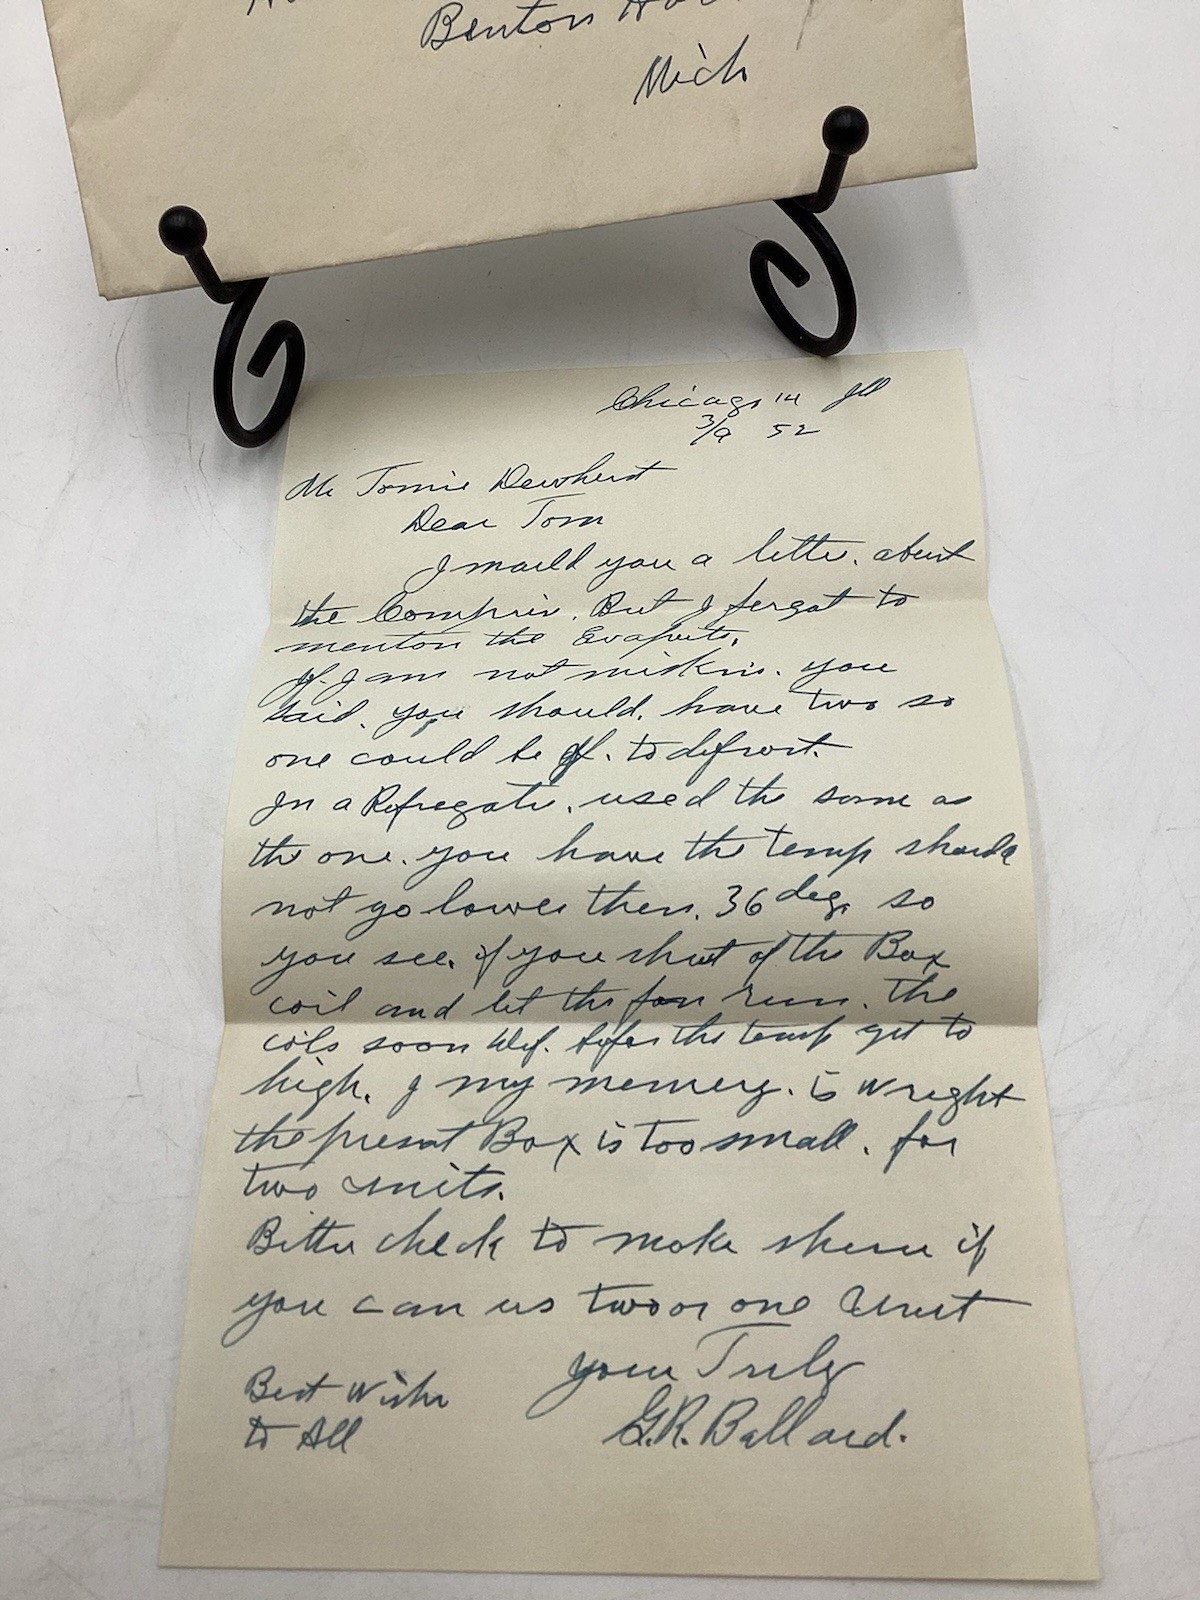 Benton
Mich
Chicago 14 Ill
3/9 52
Mr Tomie Dewherst
Dear Tom
I maild you a letter. about
the Compris. But I forgot to
menton the Evaprts.
If. I am not miskin. you
said. you should. have two so
one could be off. to defrost.
In a Refregatr. used the same as
the one. you have the temp should
not go lower then. 36 deg. so
you see. if you shut of the Box
coil and let the fan run. The
coils soon def. befor the temp get to
high. I my memery. is wright
the present Box is too small. for
two units.
Better check to make shure if
you can us two or one Unit
your Truly
Best Wishs
to All
G.R. Ballard.